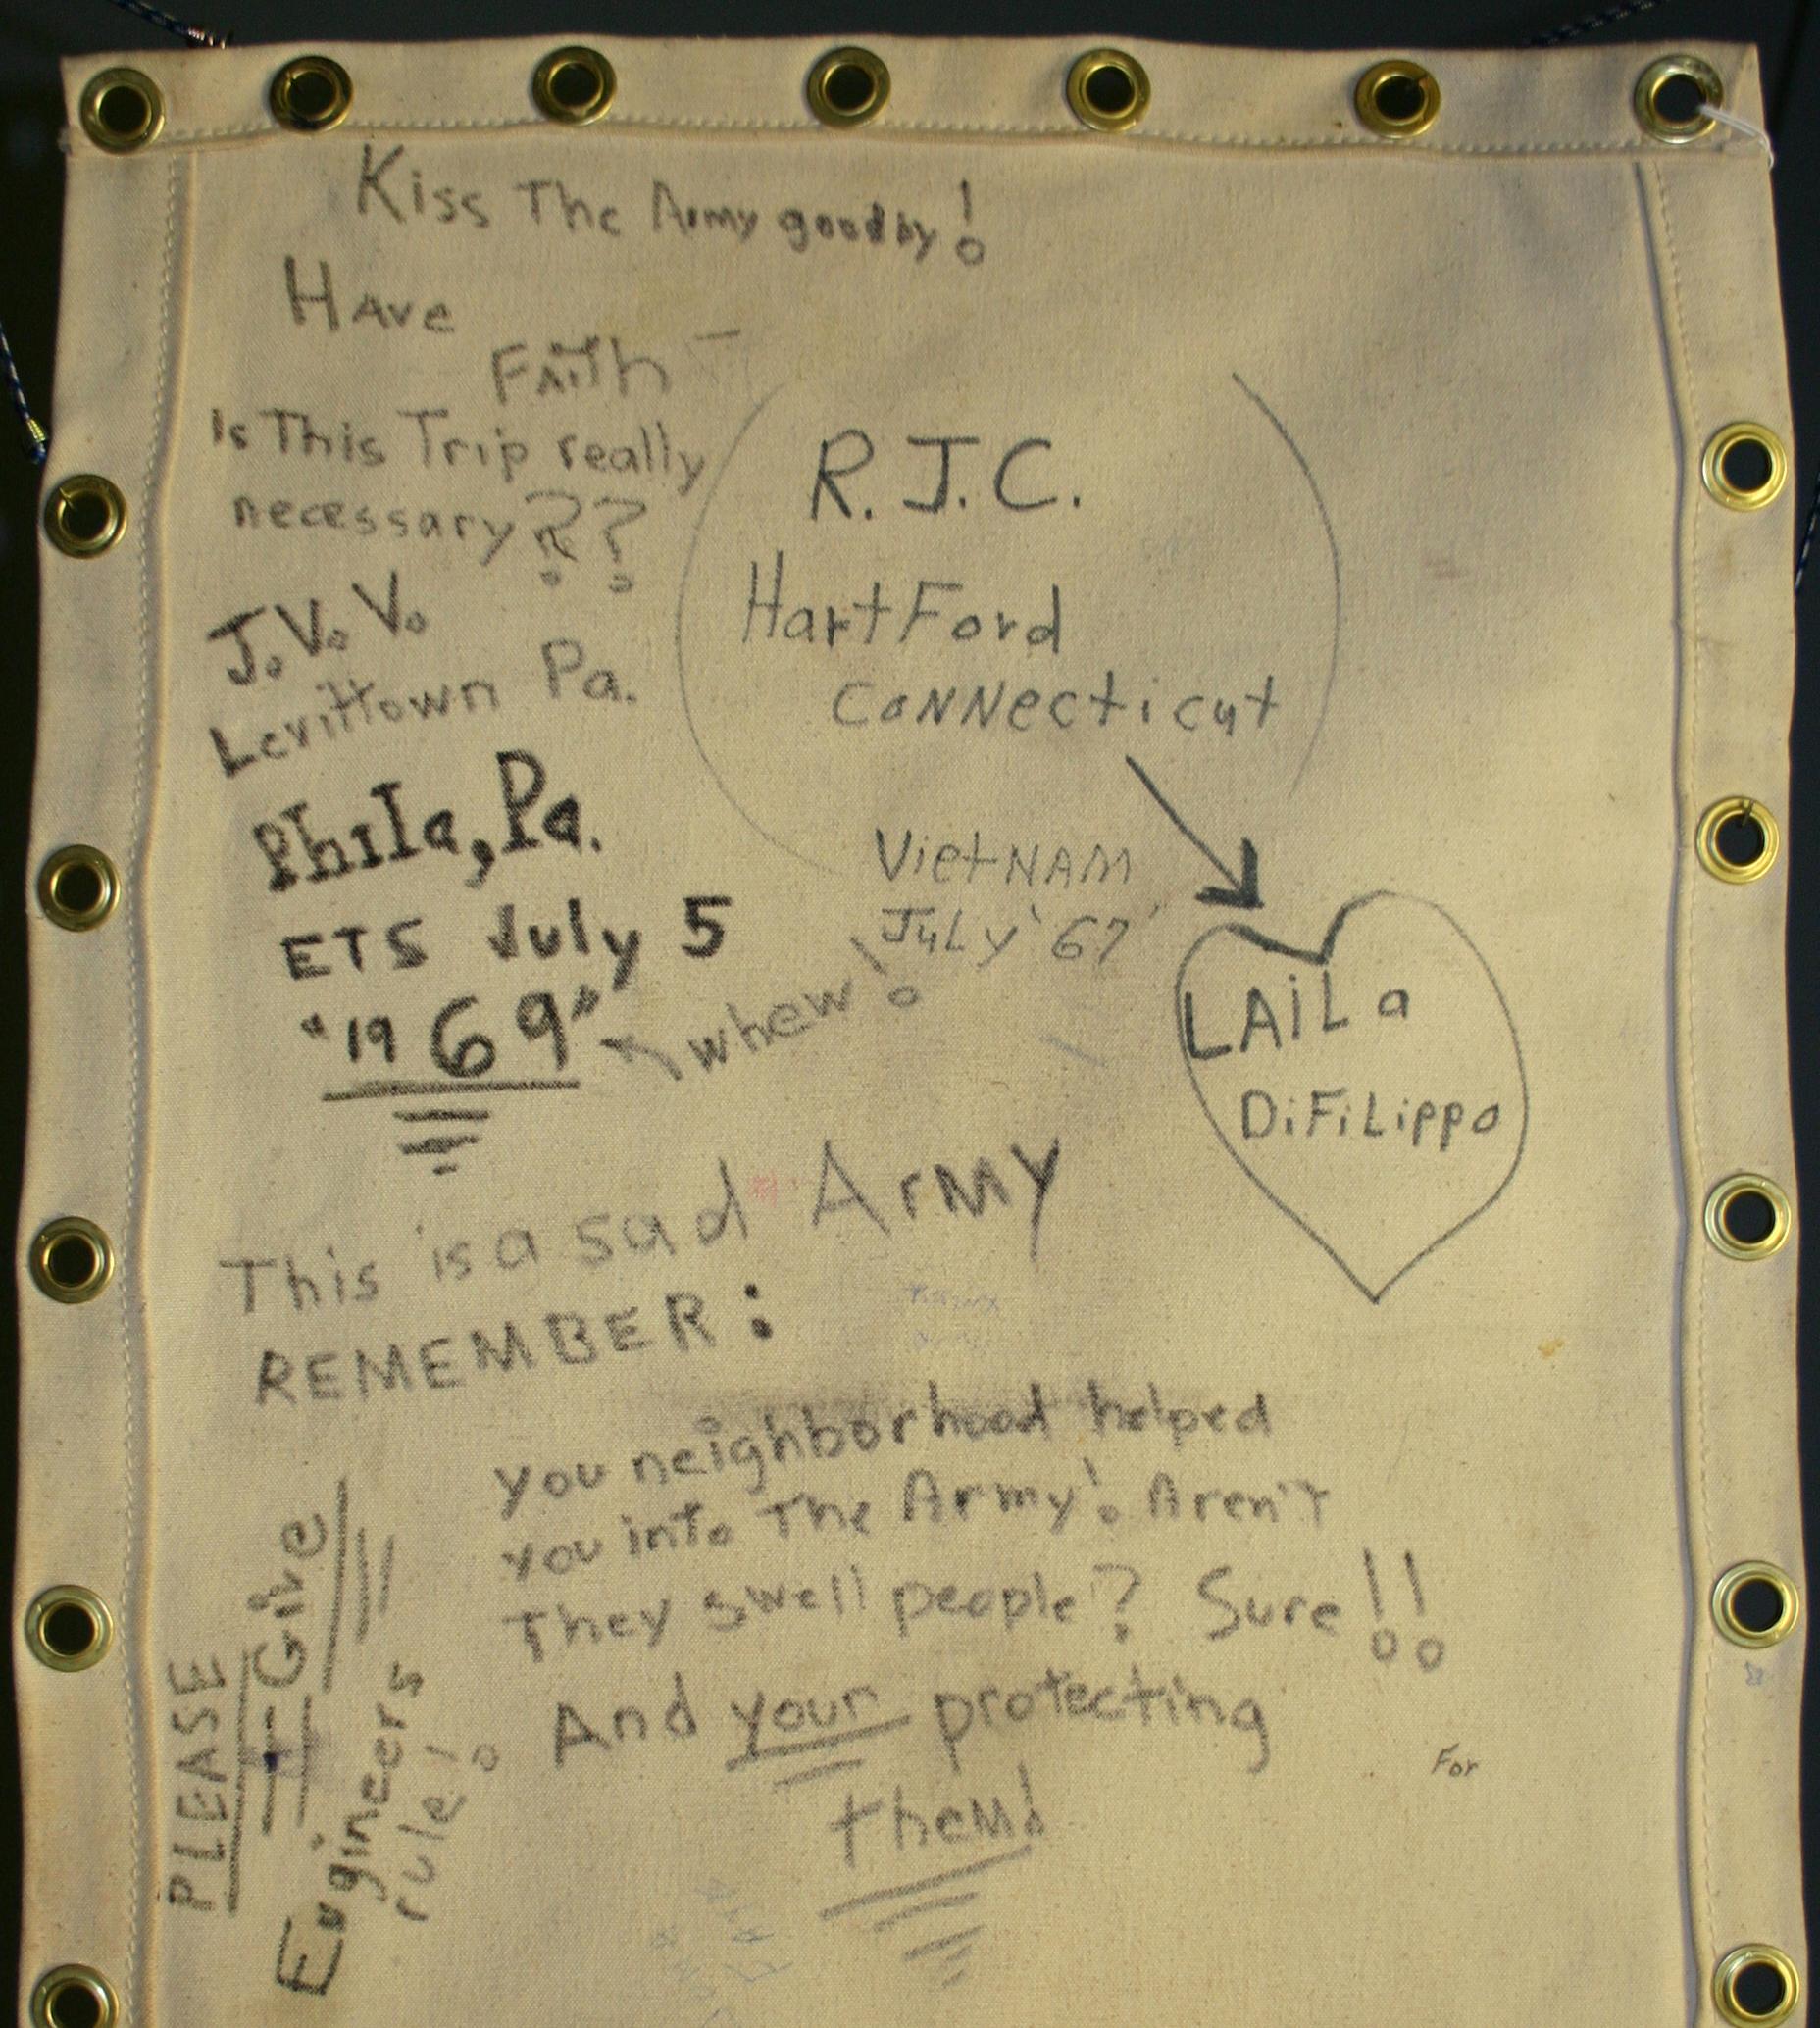 Kiss The Army goodby!
HAve
FAith -
Is This Trip really
necessary ??
J. V. V.
Levittown Pa.
Phila, Pa.
ETS July 5
"1969"
whew!
R.J.C.
HartFord
CoNNecticut
VietNAM
JuLy '67'
LAiLa
DiFiLippo
This is a sad ArMy
REMEMBER:
you neighborhood helped
you into The Army! Aren't
They swell people? Sure!!
And your protecting
theM!
PLEASE
I Give
Engineers
rule!
For